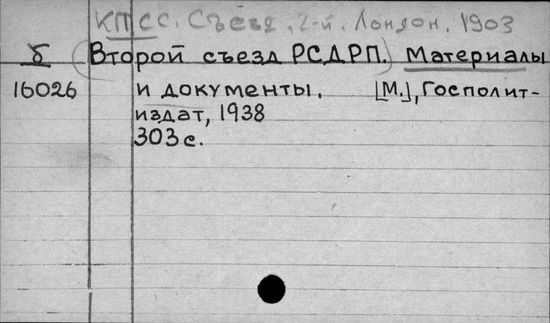 КПСС. Съезд, 2-й. Лондон, 1903
б Второй съезд РСДРП. Материалы
16026 и документы. [М.], Госполит-
издат, 1938
303 с.